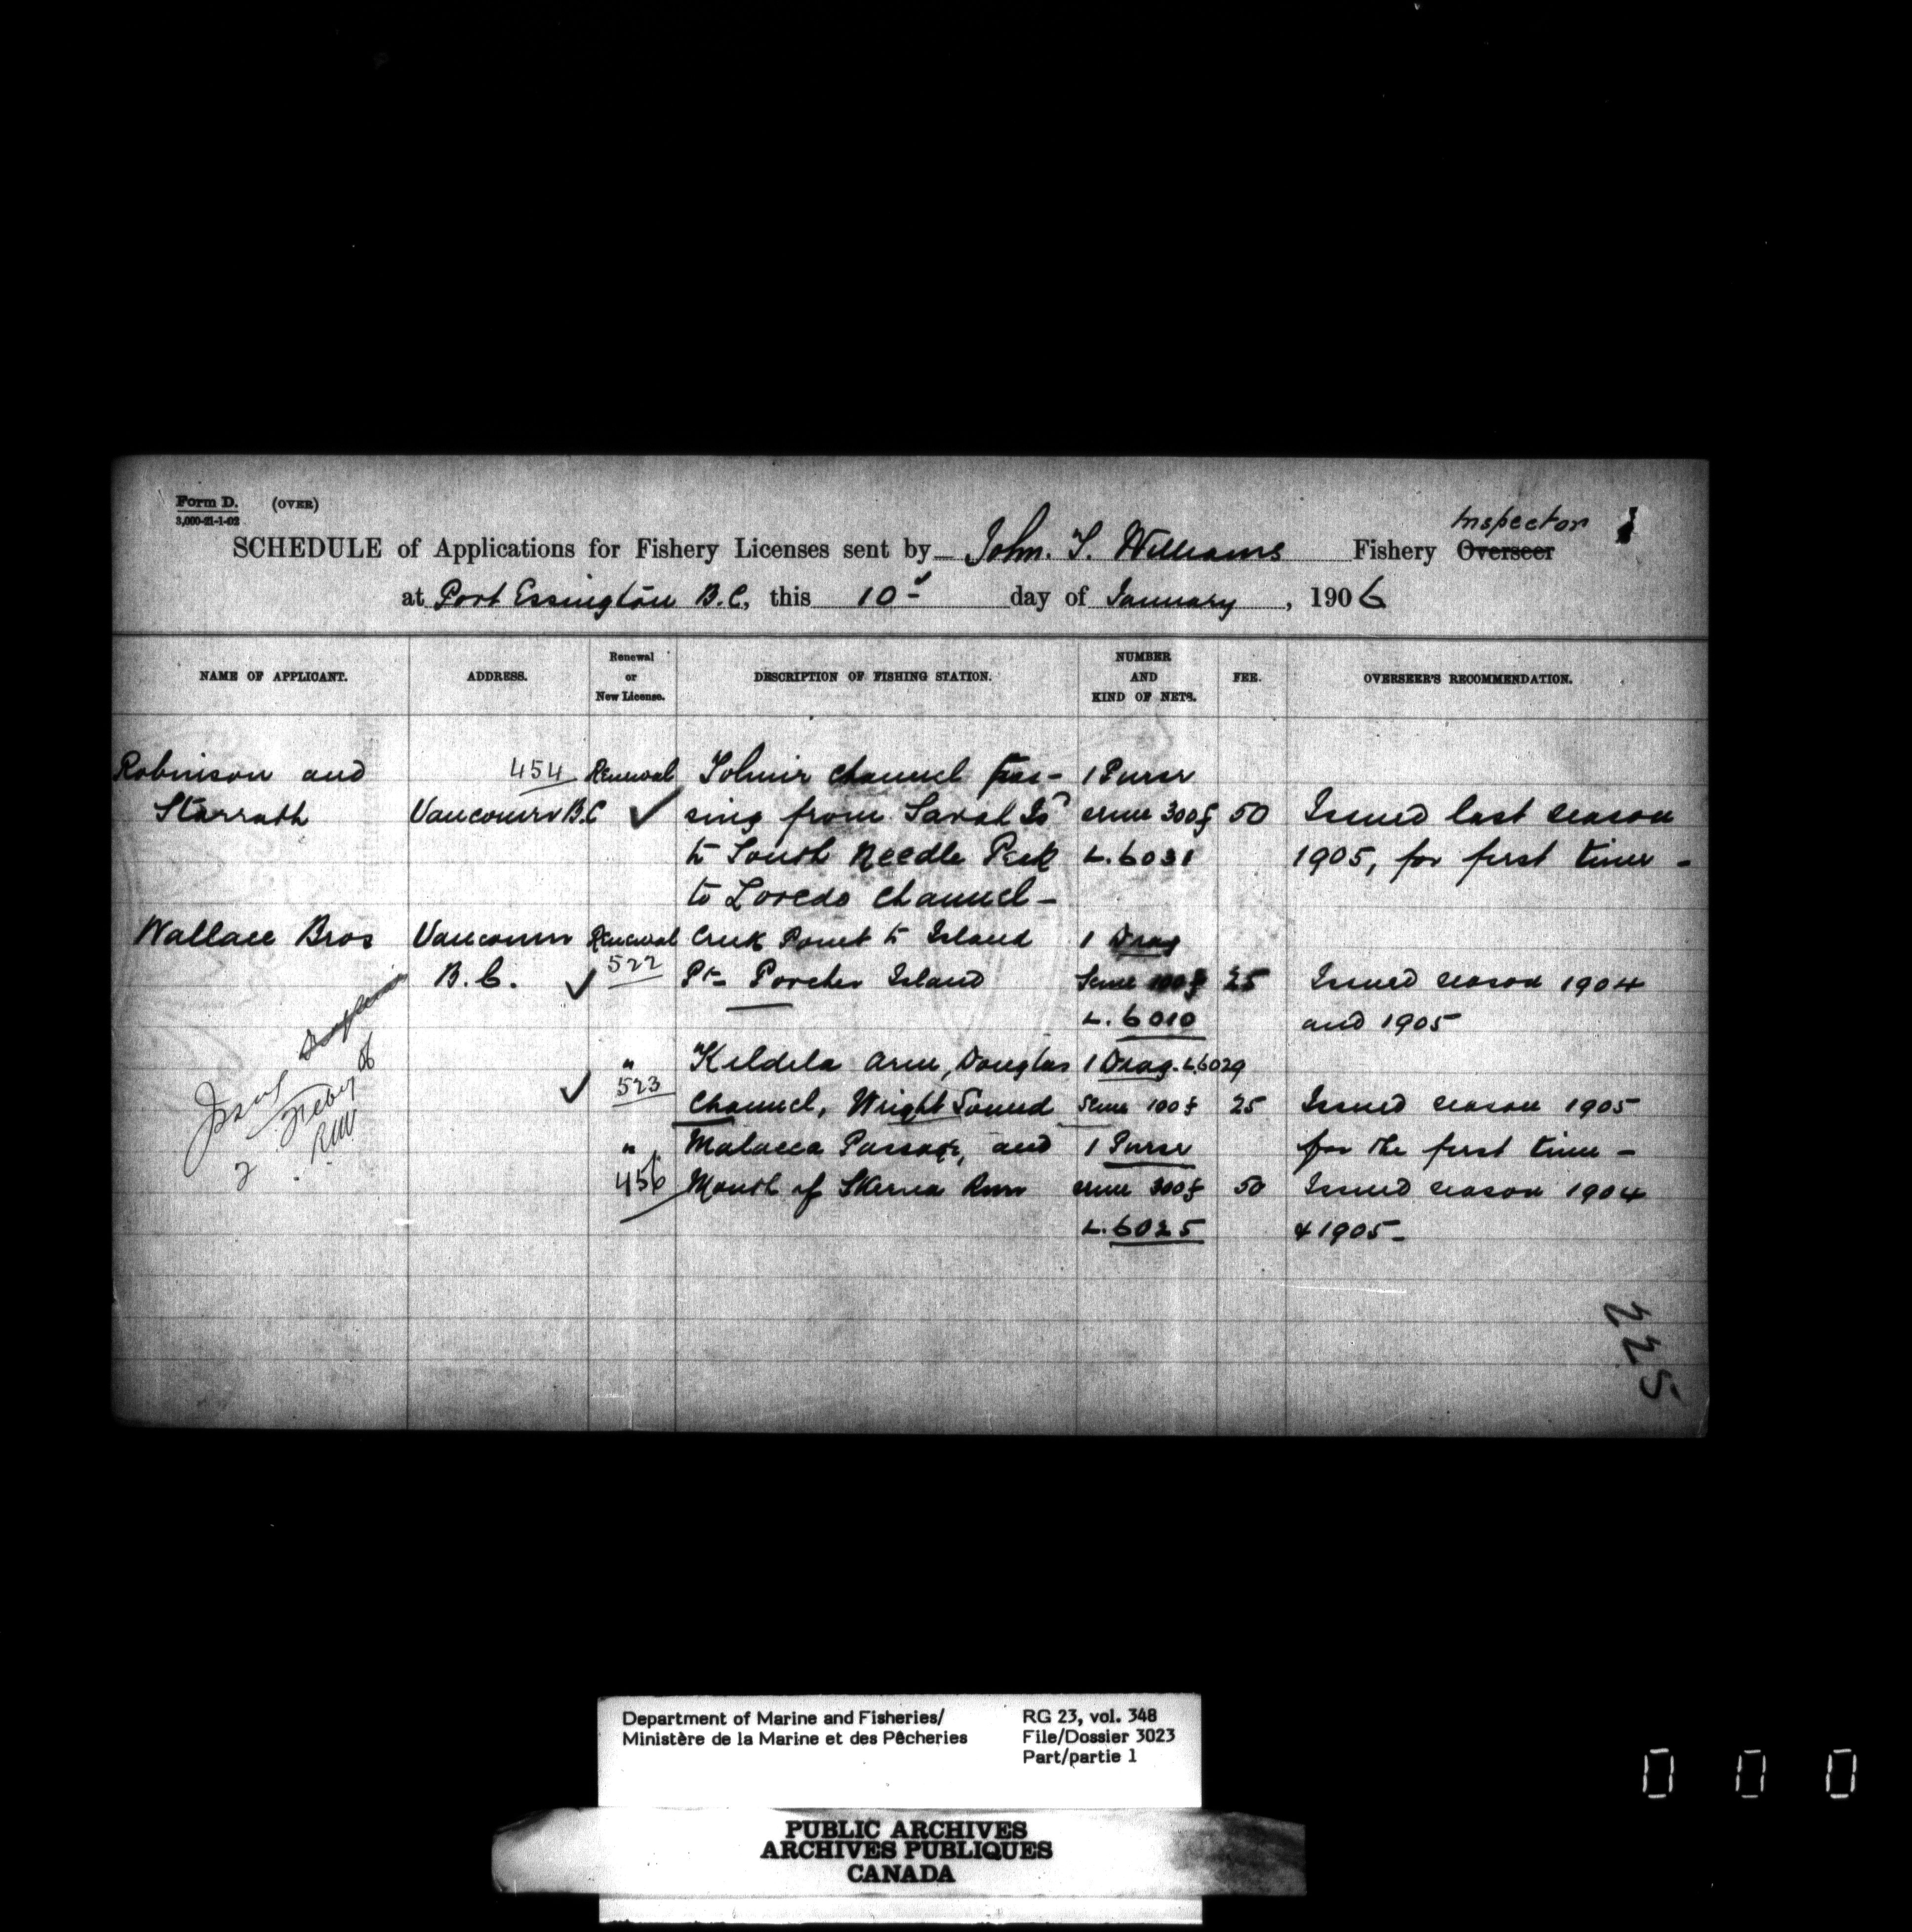 Form D. (OVER)
3,000-21-1-02
Inspector
SCHEDULE of Applications for Fishery Licenses sent by John. T. Williams Fishery Overseer
at Port Essington B.C, this 10 day of January, 1906
NAME OF APPLICANT. ADDRESS. Renewal or New License. DESCRIPTION OF FISHING STATION. NUMBER AND KIND OF NETS. FEE. OVERSEER'S RECOMMENDATION.
Robinson and 454 Renewal Tolmie Channel Pas- 1 Purse
Starrath Vancouver B.C sing from Sarah Isd seine 300f 50 Issued last season
to South Needle Peak L. 6031 1905, for first time -
to Loredo Channel -
Wallace Bros Vancouver Renewal Creek Point to Island 1 Drag
B.C. 522 Pt- Porcher Island Seine 100f 25 Issued season 1904
L. 6010 and 1905
" Kildela Arm, Douglas 1 Drag. L.6029
523 Channel, Wright Sound Seine 100f 25 Issued season 1905
" Malacca Passage, and 1 Purse for the first time -
456 Mouth of Skeena River seine 300f 50 Issued season 1904
L. 6025 & 1905 -
2 Feby 06
RW
225
Department of Marine and Fisheries/
Ministère de la Marine et des Pêcheries
RG 23, vol. 348
File/Dossier 3023
Part/partie 1
PUBLIC ARCHIVES
ARCHIVES PUBLIQUES
CANADA
0 0 0